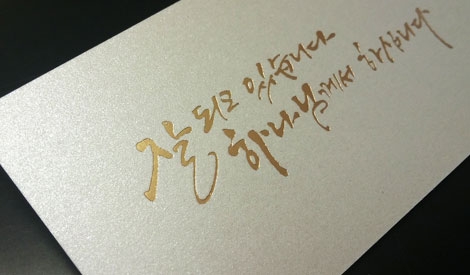 잘 되고 있습니다
하나님께서 일하십니다